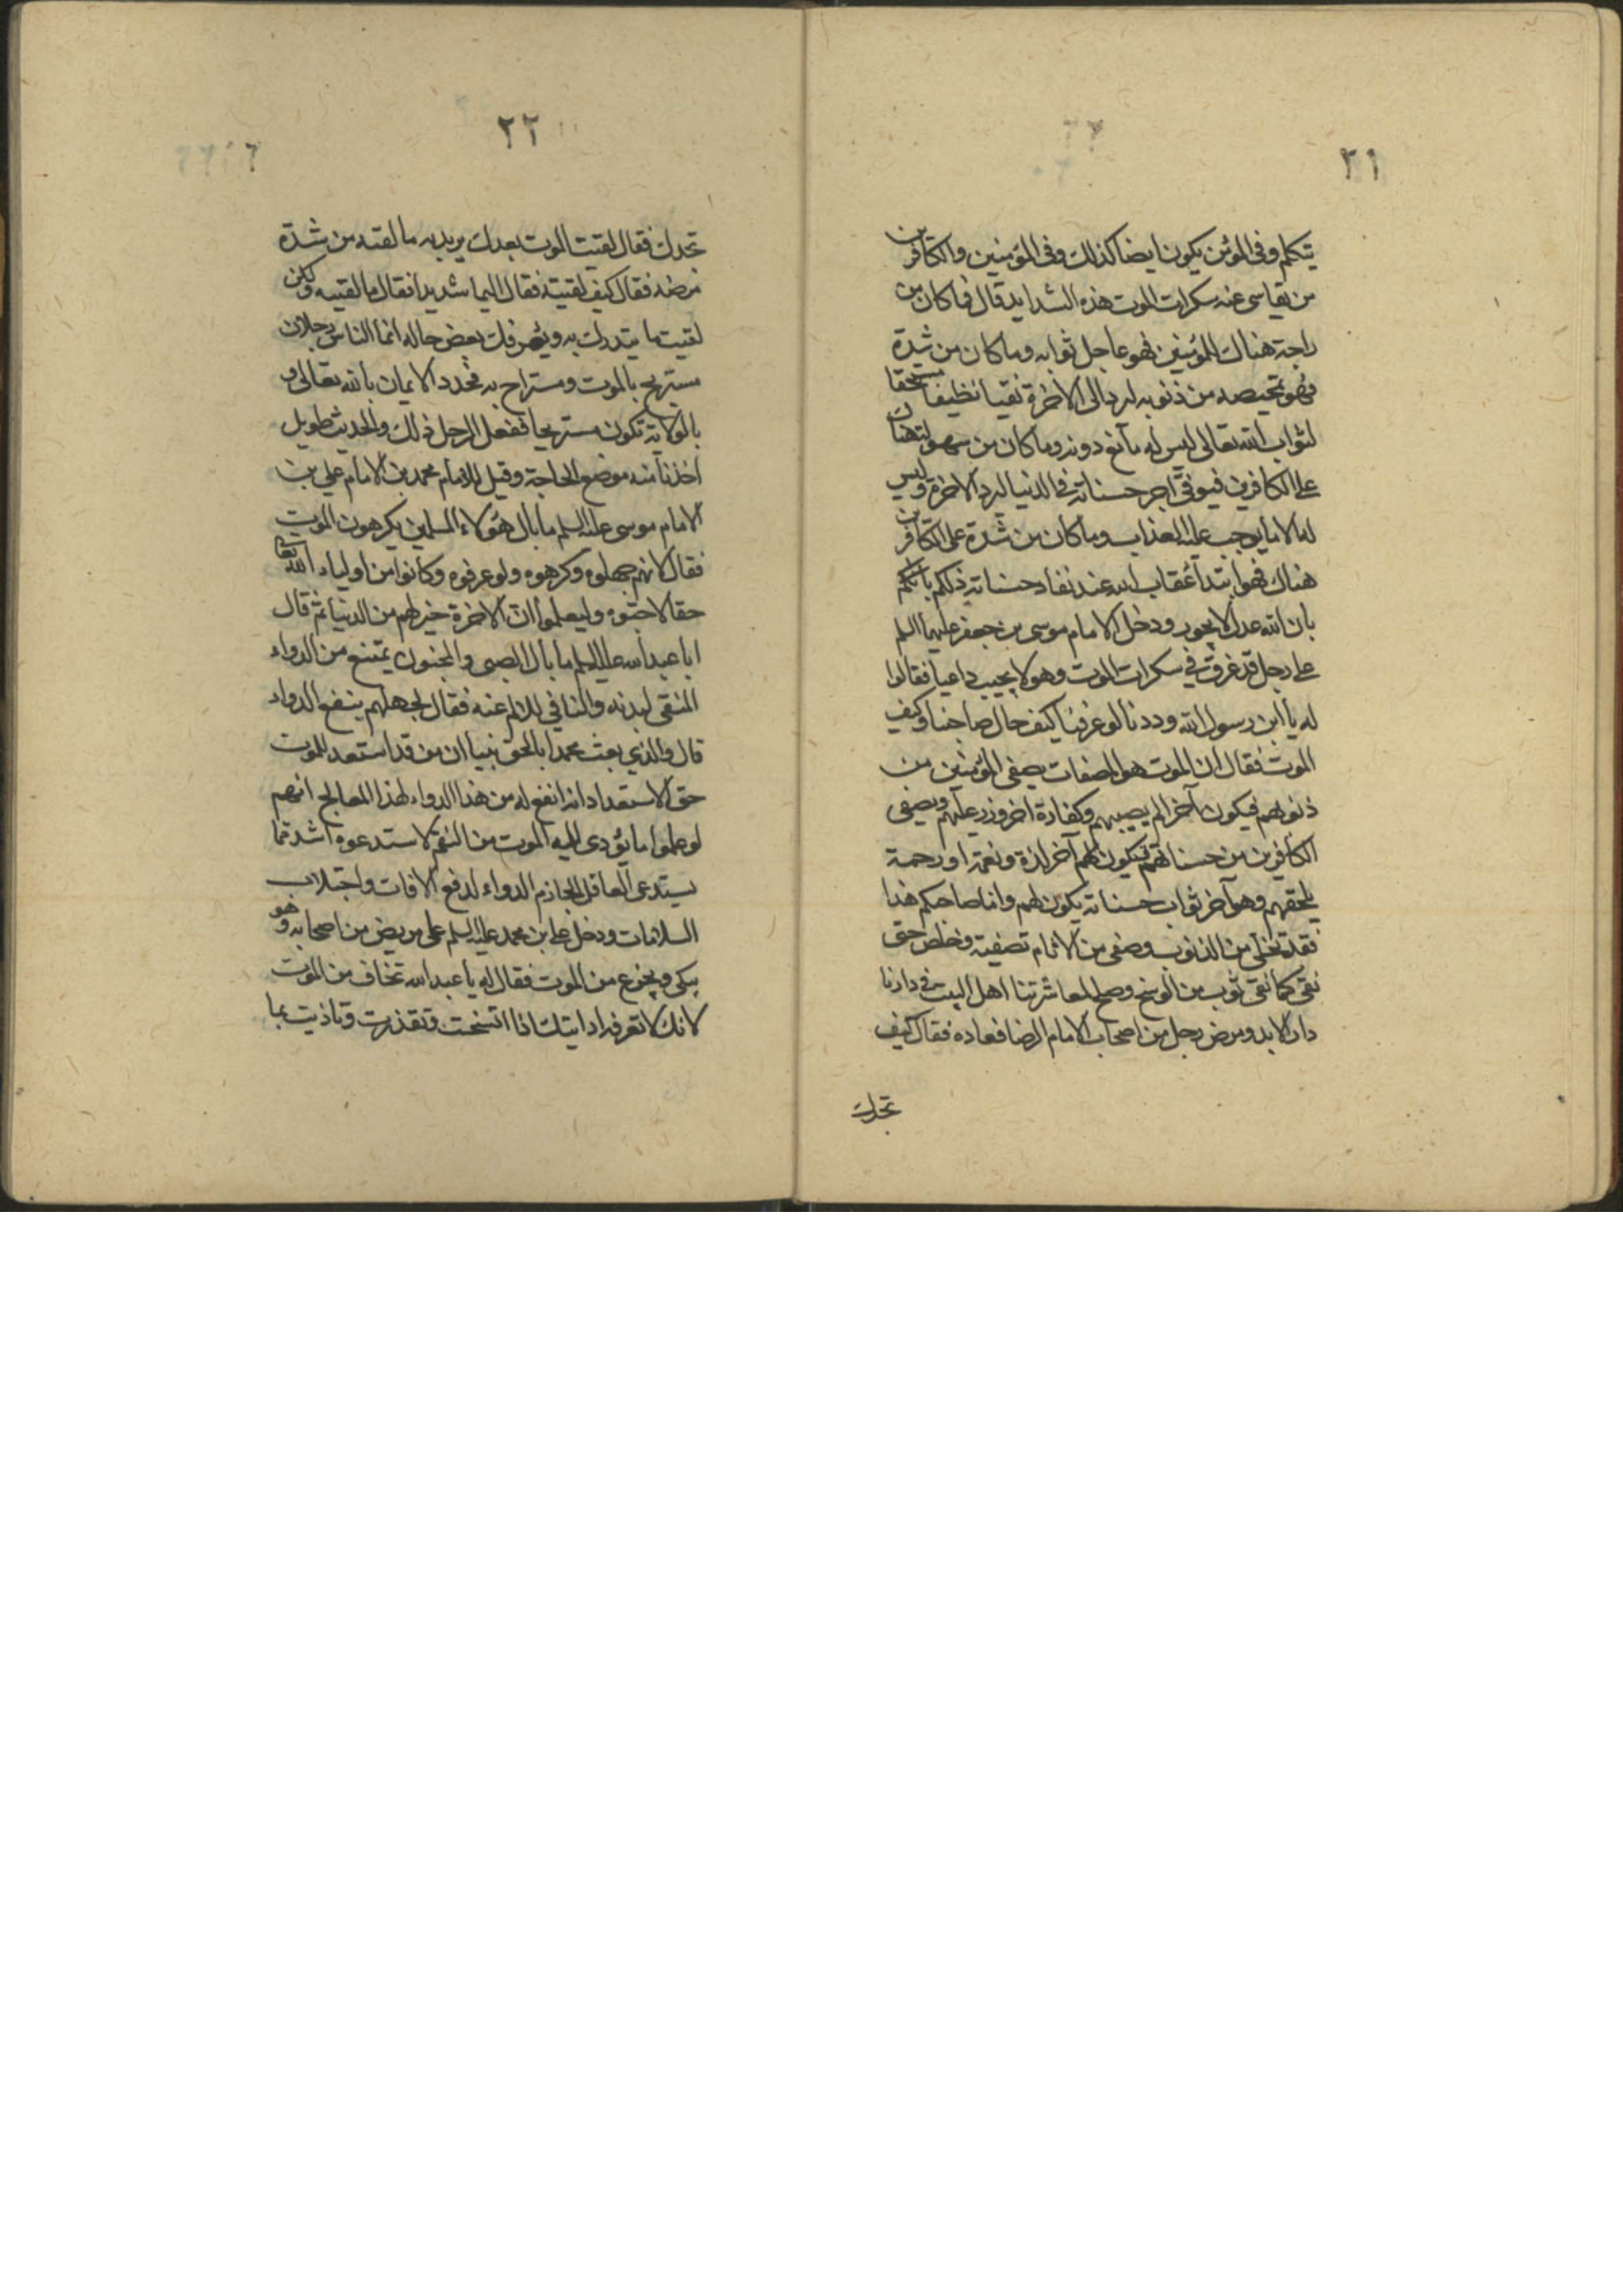 ٢١
يتكلم وفي المؤمن يكون ايضا كذلك وفي المؤمنين والكافرين
من يقاسي عند سكرات الموت هذه الشدايد قال فما كان من
راحة هناك للمؤمنين فهو عاجل ثوابه وما كان من شدة
فهو تمحيصه من ذنوبه ليرد الى الاخرة نقيا نظيفا مستحقا
لثواب الله تعالى ليس له مانع دونه وما كان من سهولة هناك
على الكافرين فيوفى اجر حسناته في الدنيا ليرد الاخرة وليس
له الا ما يوجب عليه العذاب وما كان من شدة على الكافرين
هناك فهو ابتدأ عقاب الله عند نفاد حسناته ذلكم بانكم
بان الله عدل لا يجور ودخل الامام موسى بن جعفر عليهما السلم
على رجل قد غرق في سكرات الموت وهو لا يجيب داعيا فقالوا
له يا ابن رسول الله وددنا لو عرفنا كيف حال صاحبنا وكيف
الموت فقال ان الموت هو المصفات يصفي المؤمنين من
ذنوبهم فيكون آخر الم يصيبهم وكفارة اخر وزر عليهم ويصفي
الكافرين من حسناتهم فيكون لهم آخر لذة ونعمة او رحمة
يلحقهم وهو آخر ثواب حسناته يكون لهم واما صاحبكم هذا
فقد نخل من الذنوب وصفي من الاثام تصفية وخلص حتى
نقي كما نقي ثوب من الوسخ وصلح لمعاشرتنا اهل البيت في دارنا
دار الابد ومرض رجل من اصحاب الامام الرضا فعاده فقال كيف
تجدك
٢٢
تجدك فقال لقيت الموت بعدك يريد به ما لقيه من شدة
مرضه فقال كيف لقيته فقال اليما شديدا فقال ما لقيته ولكن
لقيت ما يبتدرك به ويعرفك بعض حاله انما الناس رجلان
مستريح بالموت ومستراح به فجدد الايمان بالله تعالى و
بالولاية تكون مستريحا ففعل الرجل ذلك والحديث طويل
اخذنا منه موضع الحاجة وقيل للامام محمد بن الامام علي بن
الامام موسى عليه السلم ما بال هؤلاء المسلمين يكرهون الموت
فقال لانهم جهلوه وكرهوه ولو عرفوه وكانوا من اولياء الله تعالى
حقا لاحبوه وليعلموا ان الاخرة خير لهم من الدنيا ثم قال
ابا عبد الله عليه السلم ما بال الصبي والمجنون يمتنع من الدواء
المنقي لبدنه والنافي للالم عنه فقال لجهلهم بنفع الدواء
قال والذي بعث محمدا بالحق نبيا ان من قد استعد للموت
حق الاستعداد انه انفع له من هذا الدواء لهذا المعالج انهم
لو علموا ما يؤدي اليه الموت من النعم لاستدعوه اشد مما
يستدعي العاقل الجازم الدواء لدفع الافات واجتلاب
السلامات ودخل علي ابن محمد عليه السلم على مريض من اصحابه وهو
يبكي ويجزع من الموت فقال له يا عبد الله تخاف من الموت
لانك لا تعرفه ارايتك اذا اتسخت وتقذرت وتاذيت بما